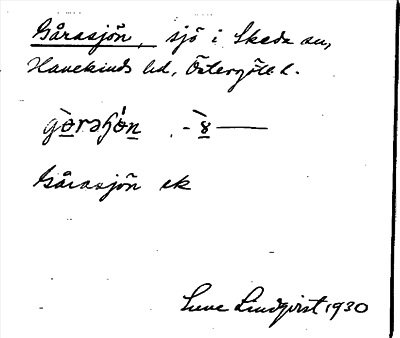 Gårasjön, sjö i Skeda sn,
Hanekinds hd, Östergötl l.
Gårasjön ek
Sune Lindqvist 1930